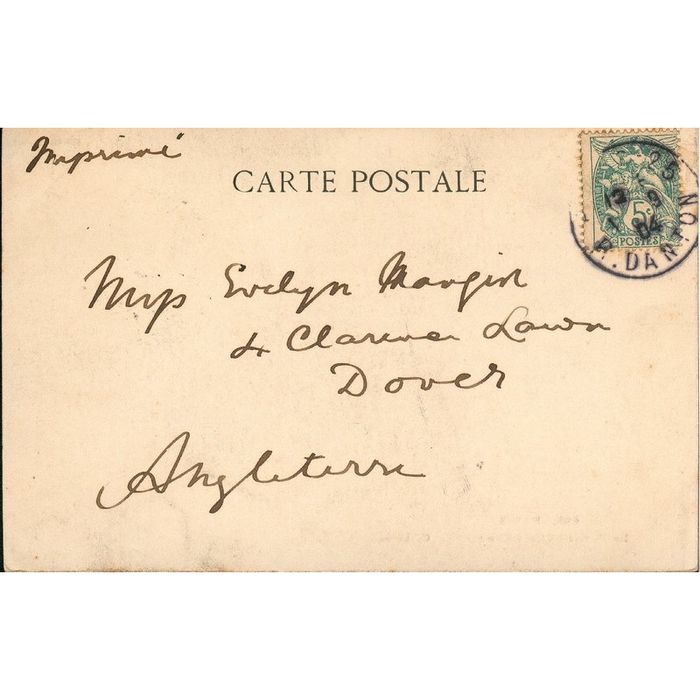 Imprimé
CARTE POSTALE
25
12
9
04
R. DANTON
5c
POSTES
Miss Evelyn
4 Clarence Lawn
Dover
Angleterre